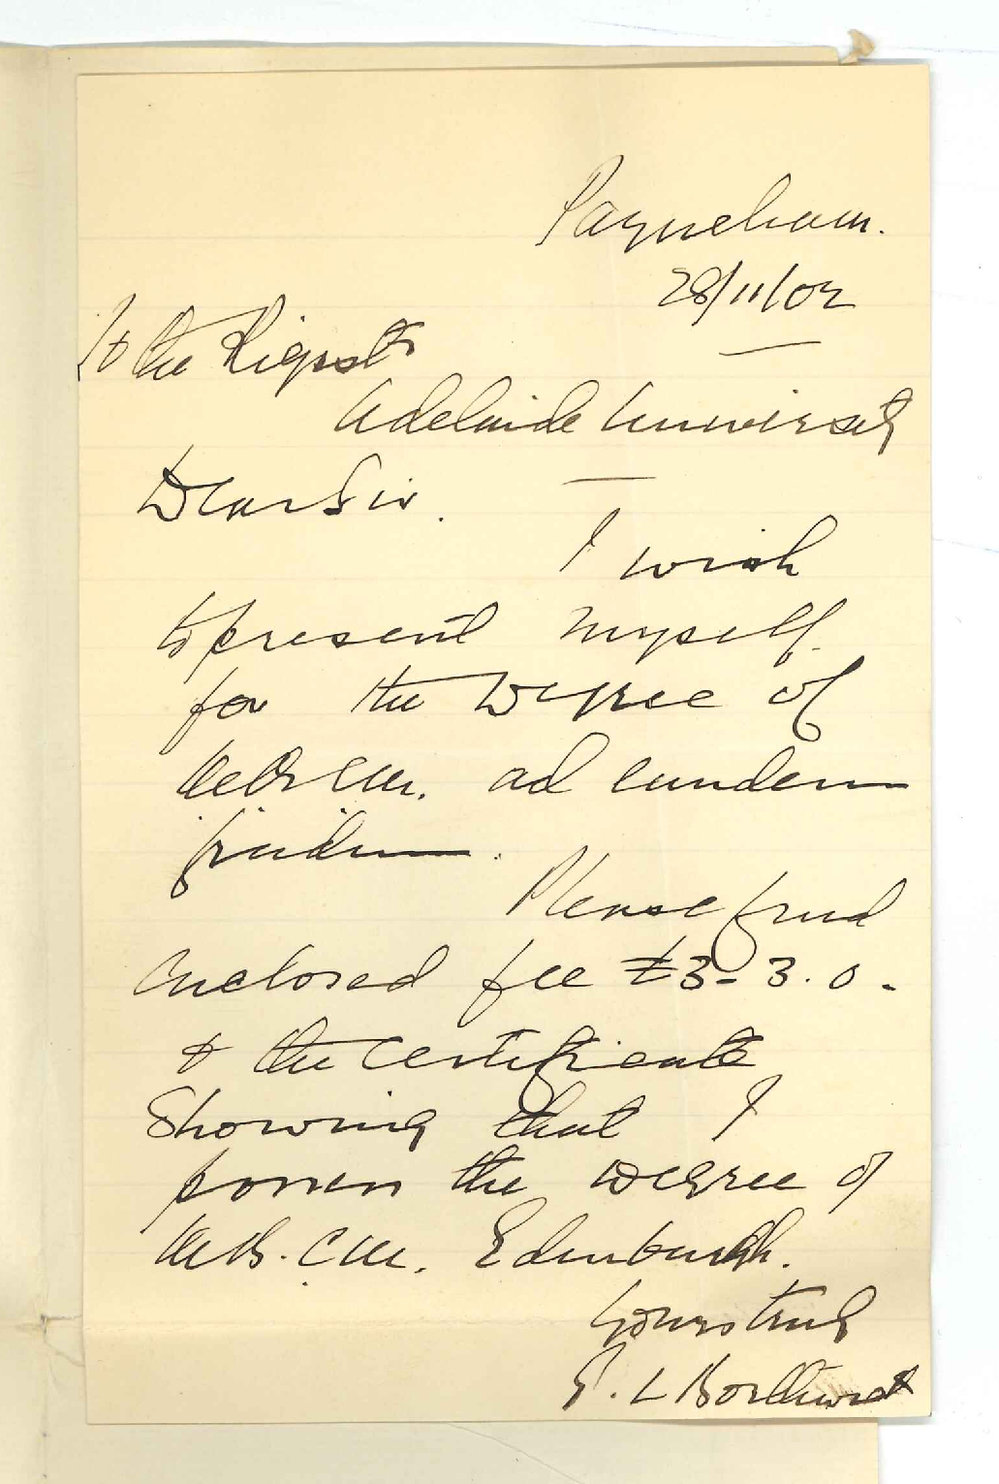 Payneham.
28/11/02
To the Registr
Adelaide University
Dear Sir.
I wish
to present myself
for the Degree of
M B C M. ad eundem
gradum.
Please find
enclosed fee £3-3.0.
& the certificate
Showing that I
possess the Degree of
M B. C M. Edinburgh.
Yours truly
L Borthwick